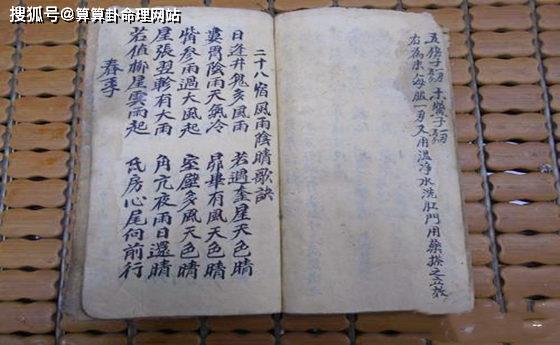 搜狐号@算算卦命理网站
五倍子 子
右為末每服一匁又用温淨水洗肛門用藥搽之立效
二十八宿風雨陰晴歌訣
日逢井鬼多風雨 若遇奎星天色晴
婁胃陰雨天氣冷 昴畢有風天色晴
參雨過大風起 室壁多風天色晴
張翌軫有大雨 角亢夜雨日還晴
若值柳星雲雨起 氐房心尾向前行
春季